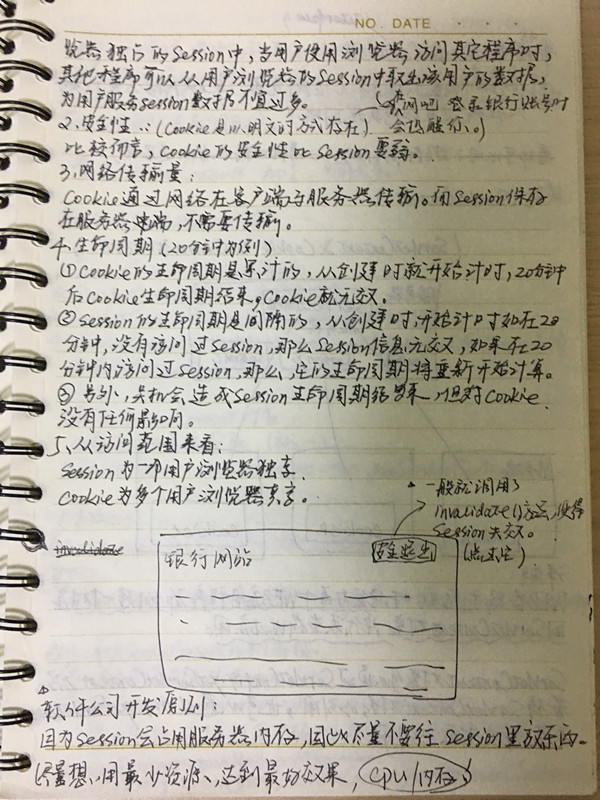 NO. DATE
览器独占的Session中,当用户使用浏览器访问其它程序时,
其他程序可以从用户浏览器的Session中取出该用户的数据,
为用户服务session数据不宜过多。
(像网吧登录银行账号时
2、安全性:(Cookie是以明文的方式存在) 会提醒你。)
比较而言,cookie的安全性比Session要弱。
3、网络传输量:
Cookie通过网络在客户端与服务器传输。而Session保存
在服务器端,不需要传输。
4、生命周期(20分钟为例)
①Cookie的生命周期是累计的,从创建时就开始计时,20分钟
后Cookie生命周期结束。Cookie就无效。
②Session的生命周期是间隔的,从创建时,开始计时如在20
分钟,没有访问过Session,那么Session信息无效,如果在20
分钟内访问过Session,那么,它的生命周期将重新开始计算。
③另外,关机会造成Session生命周期结束,但对Cookie
没有任何影响。
5、从访问范围来看:
Session为一个用户浏览器独享
Cookie为多个用户浏览器共享。
一般就调用了
invalidate()方法,使得
Session失效。
(点击它)
invalidate
银行网站 安全退出
软件公司开发原则:
因为Session会占用服务器内存,因此尽量不要往Session里放东西。
尽量想,用最少资源、达到最好效果,(cpu/内存)